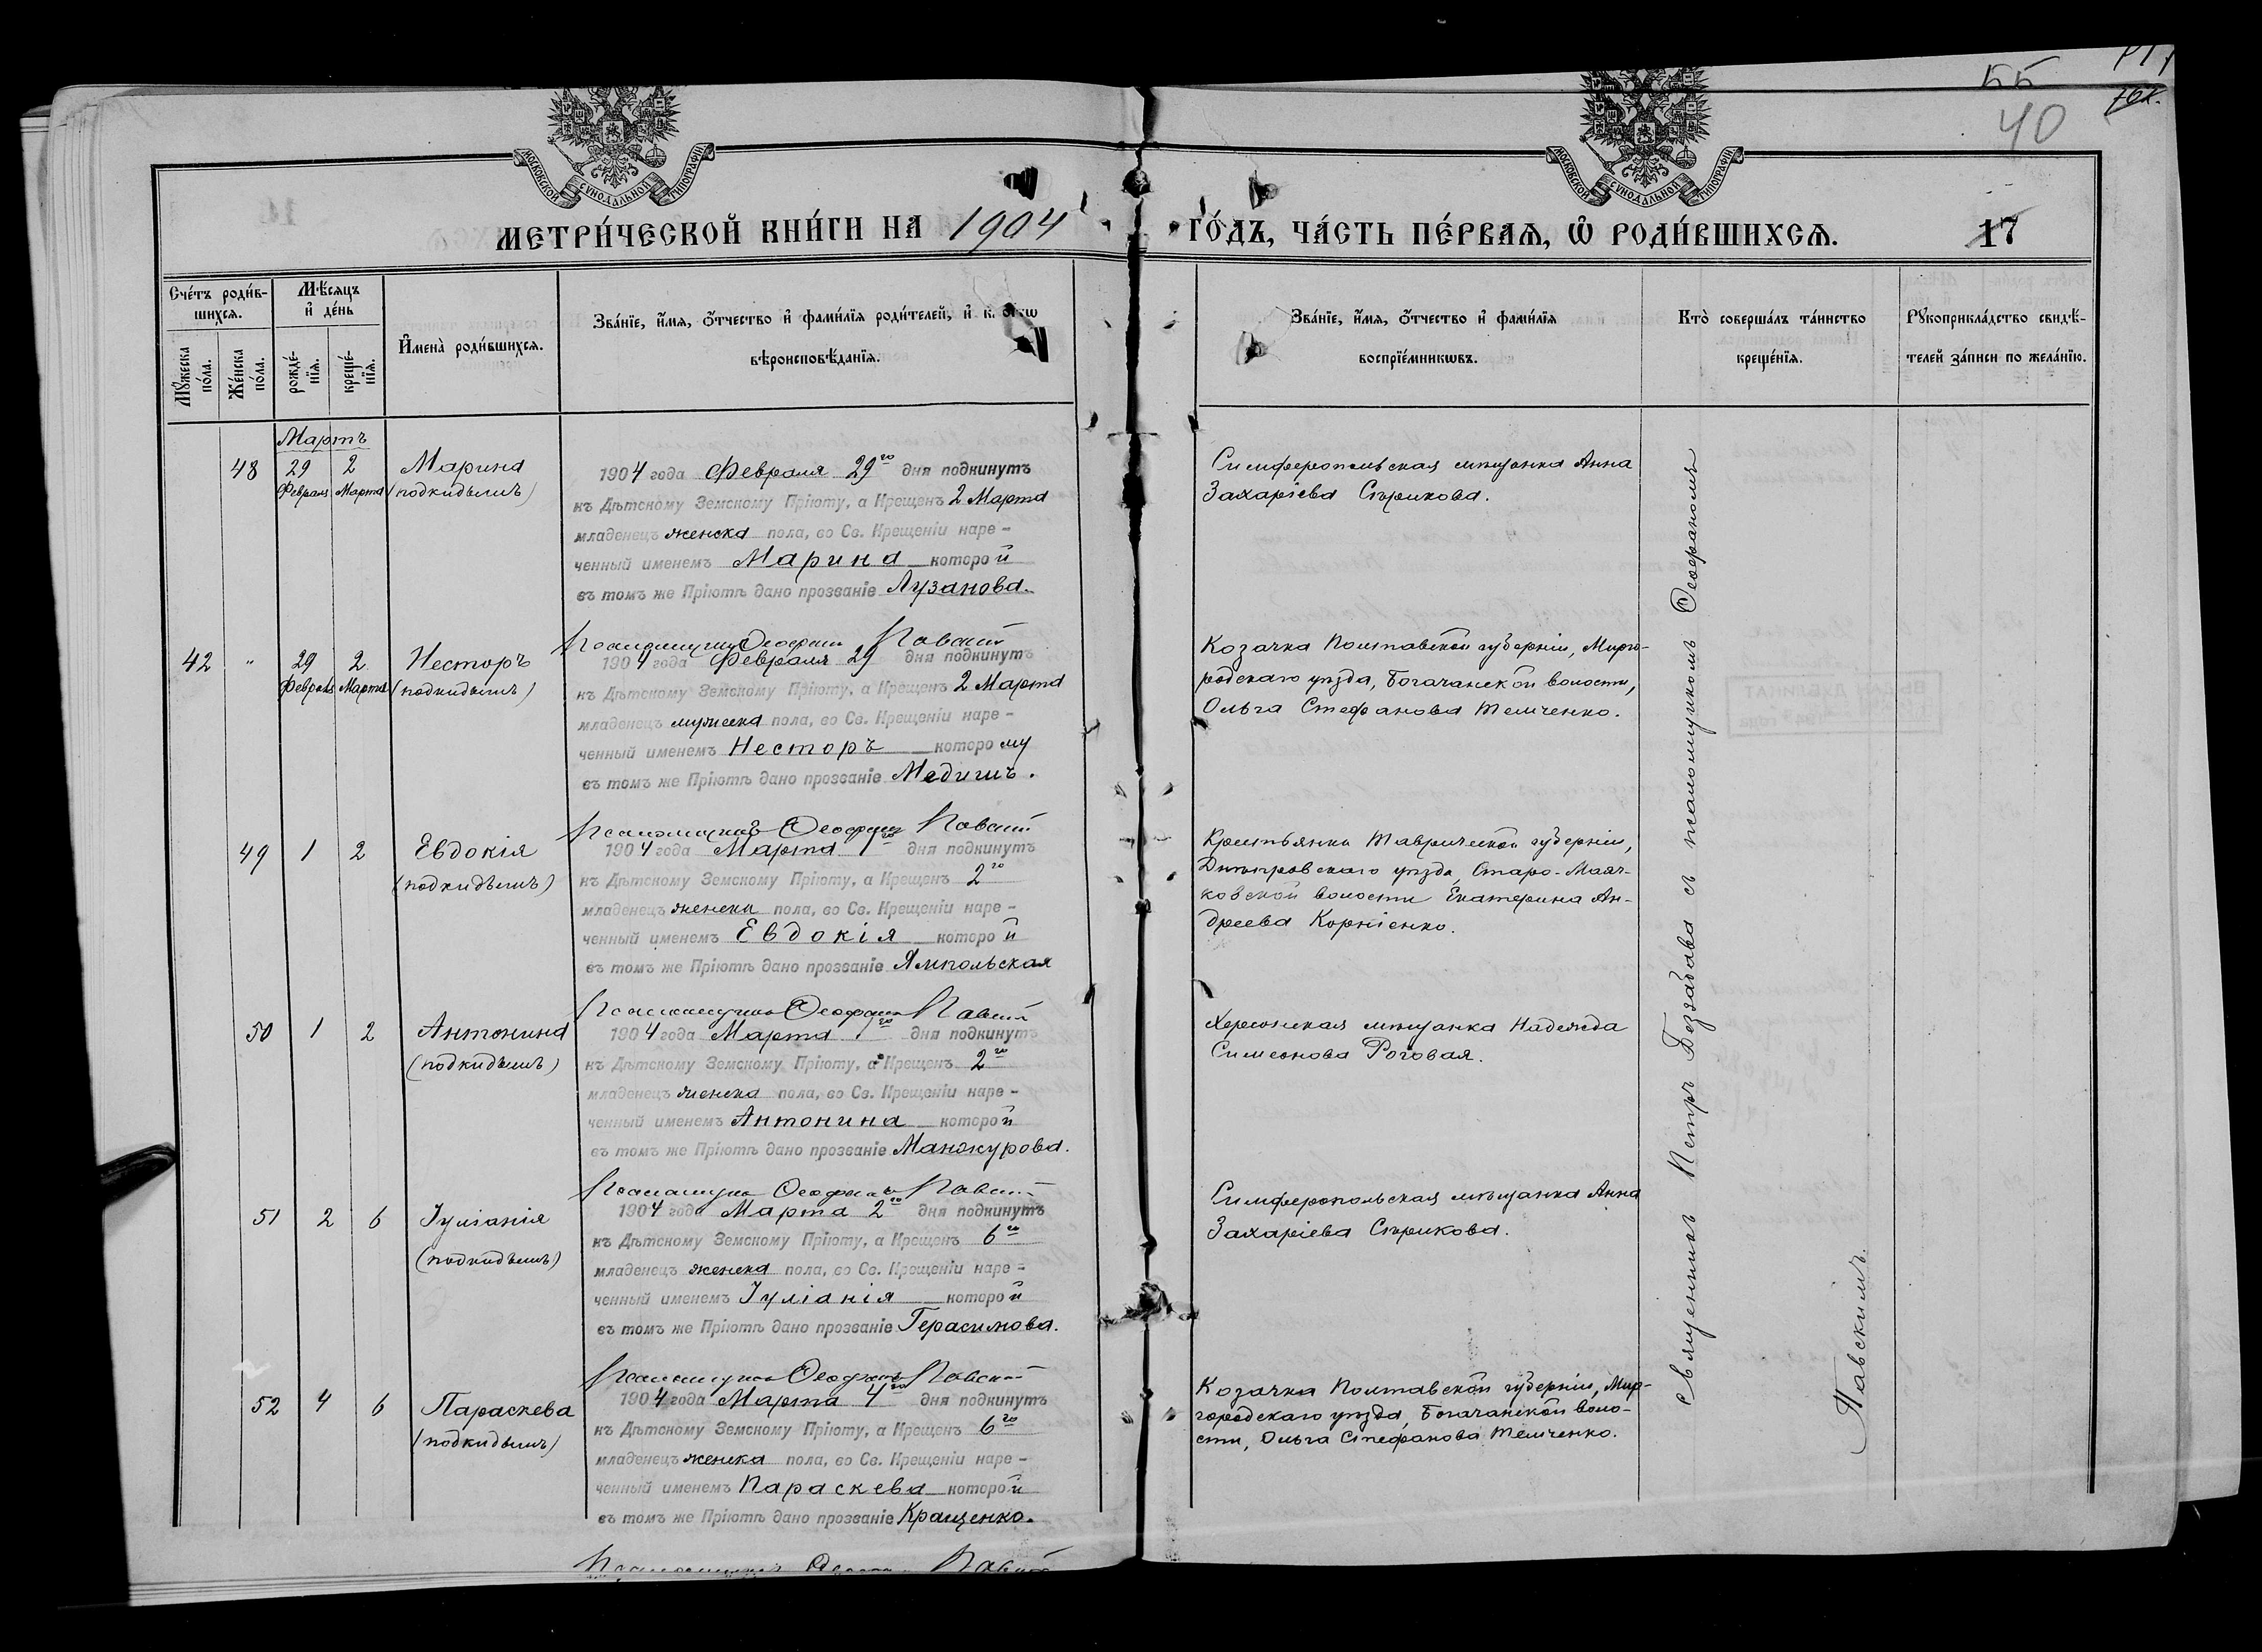 ББ
40
МОСКОВСКОЙ СѴНОДАЛЬНОЙ ТИПОГРАФІИ
МОСКОВСКОЙ СѴНОДАЛЬНОЙ ТИПОГРАФІИ
МЕТРИ́ЧЕСКОЙ КНИ́ГИ НА 1904 ГО́ДЪ, ЧА́СТЬ ПЕ́РВАЯ, Ѡ҆ РОДИ́ВШИХСЯ.
17
Сче́тъ роди́в-
шихся.
Мꙋ́жеска по́ла.
Же́нска по́ла.
Мѣ́сяцъ и҆ де́нь
рожде́-
нїя.
креще́-
нїя.
И҆мена̀ роди́вшихся.
Зва́нїе, и҆́мя, ѻ҆́тчество и҆ фами́лїя роди́телей, и҆ к
вѣроисповѣ́данїя.
Зва́нїе, и҆́мя, ѻ҆́тчество и҆ фами́лїя
воспрїе́мникѡвъ.
Кто̀ соверша́лъ та́инство
креще́нїя.
Рꙋкоприкла́дство свидѣ́-
телей за́писи по жела́нїю.
Мартъ
48 29 2 Марина
Февраля Марта (подкидышъ)
1904 года Февраля 29го дня подкинутъ
къ Дѣтскому Земскому Пріюту, а Крещенъ 2 Марта
младенецъ женска пола, во Св. Крещеніи наре-
ченный именемъ Марина которой
въ томъ же Пріютѣ дано прозваніе Лузанова.
Симферопольская мѣщанка Анна
Захаріева Сѣрикова.
42 " 29 2 Несторъ
Февраля Марта (подкидышъ)
1904 года Февраля 29 дня подкинутъ
къ Дѣтскому Земскому Пріюту, а Крещенъ 2 Марта
младенецъ мужеска пола, во Св. Крещеніи наре-
ченный именемъ Несторъ которому
въ томъ же Пріютѣ дано прозваніе
Козачка Полтавской губерніи, Мирго-
родскаго уѣзда, Богачанской волости,
Ольга Стефанова Темченко.
49 1 2 Евдокія
(подкидышъ)
1904 года Марта 1го дня подкинутъ
къ Дѣтскому Земскому Пріюту, а Крещенъ 2го
младенецъ женска пола, во Св. Крещеніи наре-
ченный именемъ Евдокія которой
въ томъ же Пріютѣ дано прозваніе Ямпольская
Крестьянка Таврической губерніи,
Днѣпровскаго уѣзда, Старо-Маяч-
ковской волости Екатерина Ан-
дреева Корніенко.
50 1 2 Антонина
(подкидышъ)
1904 года Марта 1го дня подкинутъ
къ Дѣтскому Земскому Пріюту, а Крещенъ 2го
младенецъ женска пола, во Св. Крещеніи наре-
ченный именемъ Антонина которой
въ томъ же Пріютѣ дано прозваніе Манжурова.
Херсонская мѣщанка Надежда
Симеонова Роговая.
51 2 6 Іуліанія
(подкидышъ)
1904 года Марта 2го дня подкинутъ
къ Дѣтскому Земскому Пріюту, а Крещенъ 6го
младенецъ женска пола, во Св. Крещеніи наре-
ченный именемъ Іуліанія которой
въ томъ же Пріютѣ дано прозваніе Герасимова.
Симферопольская мѣщанка Анна
Захаріева Сѣрикова.
52 4 6 Параскева
(подкидышъ)
1904 года Марта 4го дня подкинутъ
къ Дѣтскому Земскому Пріюту, а Крещенъ 6го
младенецъ женска пола, во Св. Крещеніи наре-
ченный именемъ Параскева которой
въ томъ же Пріютѣ дано прозваніе Кращенко.
Козачка Полтавской губерніи, Мир-
городскаго уѣзда, Богачанской воло-
сти, Ольга Стефанова Темченко.
Священникъ Петръ Беззабава съ псаломщикомъ Ѳеофаномъ
Павскимъ.